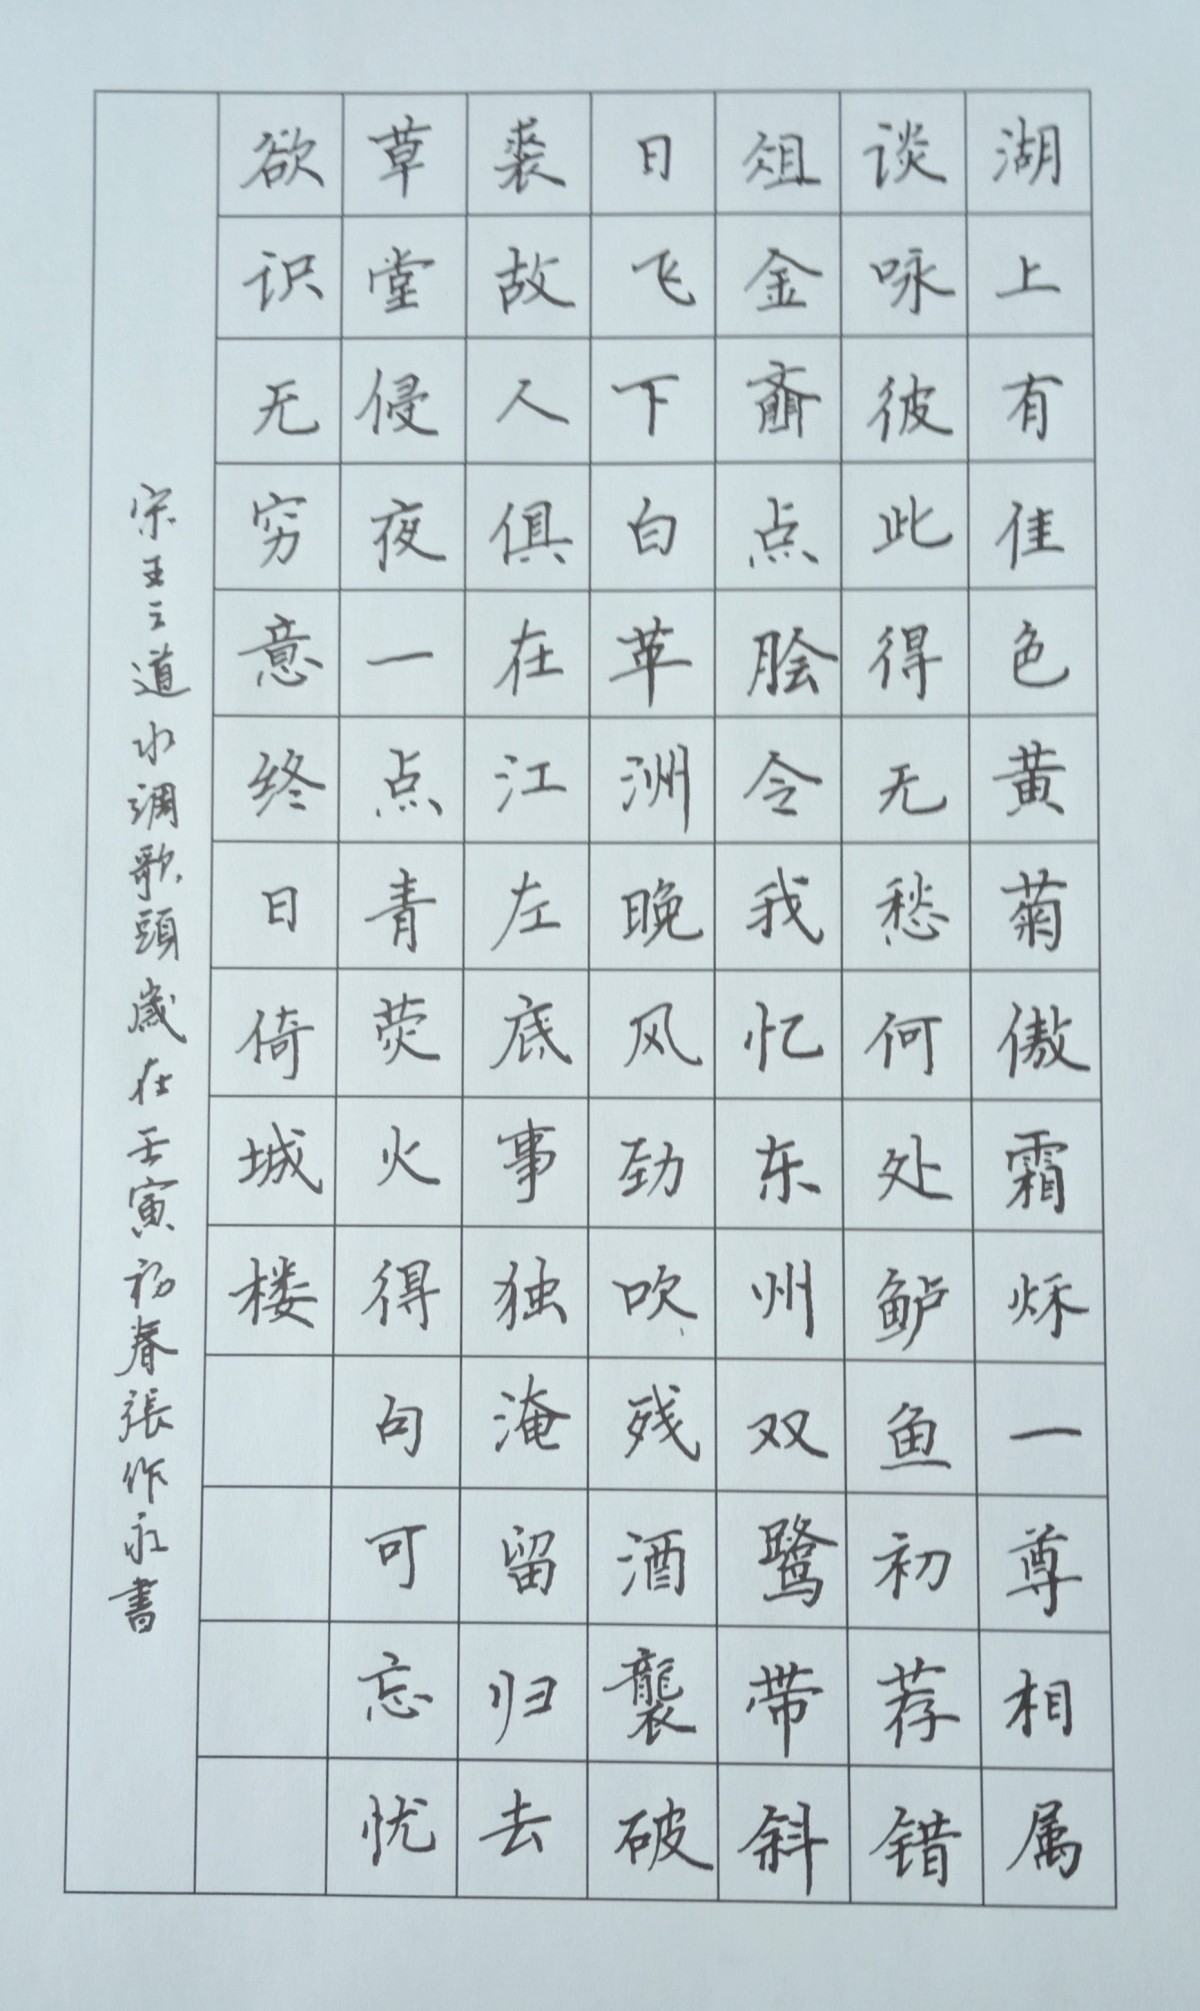 湖上有佳色黄菊傲霜秌一尊相属
谈咏彼此得无愁何处鲈鱼初荐错
俎金齑点脍令我忆东州双鹭带斜
日飞下白苹洲晚风劲吹残酒袭破
裘故人俱在江左底事独淹留归去
草堂侵夜一点青荧火得句可忘忧
欲识无穷意终日倚城楼
宗王之道水调歌頭歲在壬寅初春張作永書